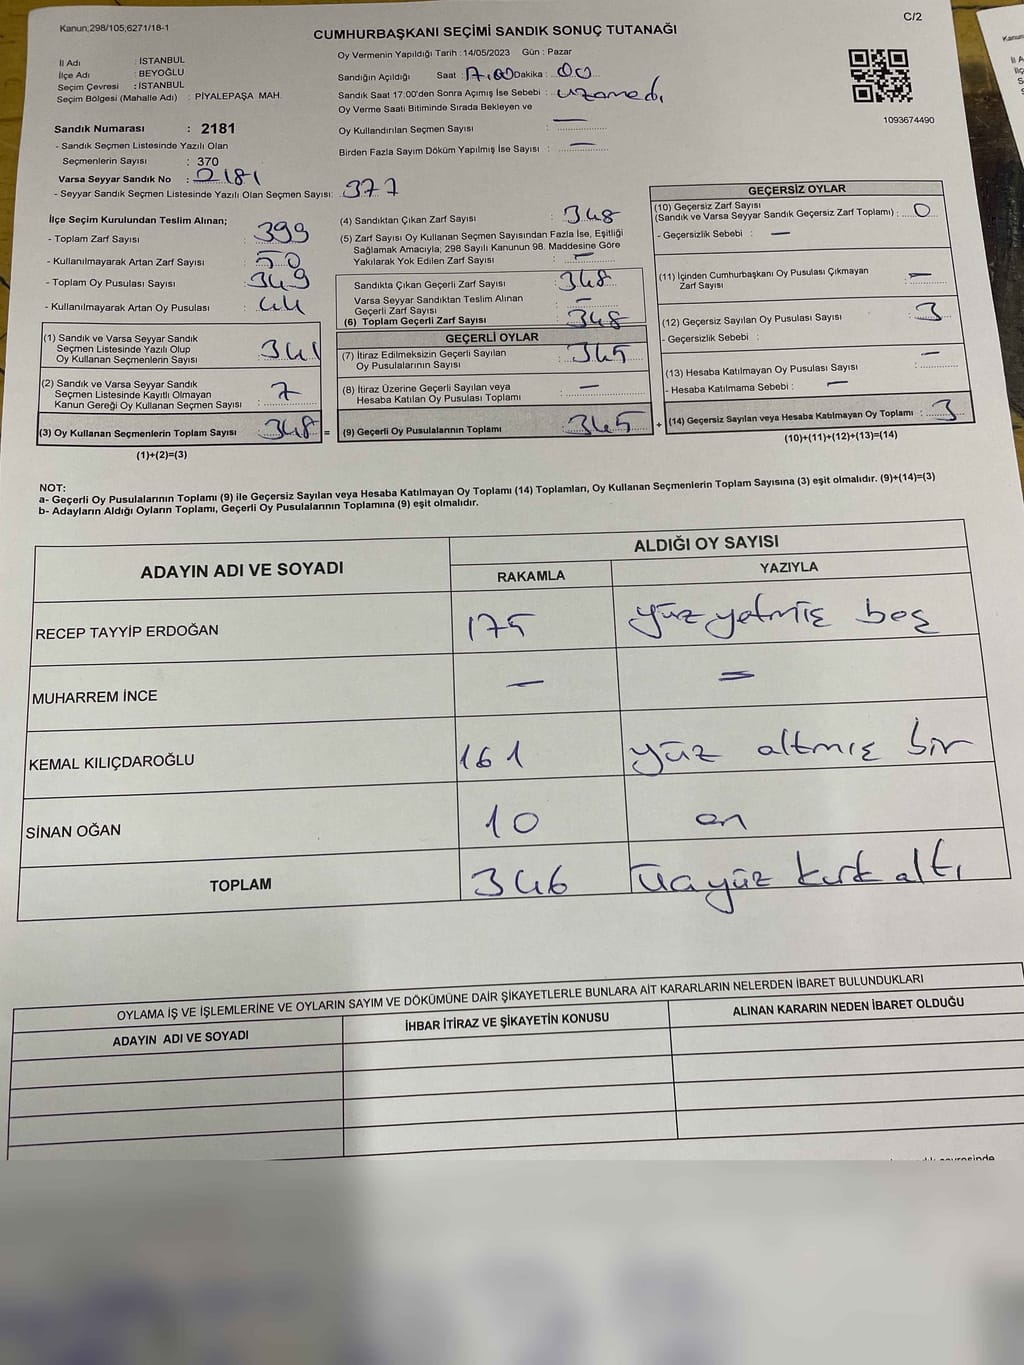 Kanun;298/105,6271/18-1
C/2
CUMHURBAŞKANI SEÇİMİ SANDIK SONUÇ TUTANAĞI
İl Adı : İSTANBUL
İlçe Adı : BEYOĞLU
Seçim Çevresi : İSTANBUL
Seçim Bölgesi (Mahalle Adı) : PİYALEPAŞA MAH.
Oy Vermenin Yapıldığı Tarih : 14/05/2023 Gün : Pazar
Sandığın Açıldığı Saat : 17.00 Dakika : 00
Sandık Saat 17:00'den Sonra Açımış İse Sebebi : uzamadı
Oy Verme Saati Bitiminde Sırada Bekleyen ve
Oy Kullandırılan Seçmen Sayısı : —
Birden Fazla Sayım Döküm Yapılmış İse Sayısı : —
1093674490
Sandık Numarası : 2181
- Sandık Seçmen Listesinde Yazılı Olan
Seçmenlerin Sayısı : 370
Varsa Seyyar Sandık No : 2181
- Seyyar Sandık Seçmen Listesinde Yazılı Olan Seçmen Sayısı: 377
İlçe Seçim Kurulundan Teslim Alınan;
- Toplam Zarf Sayısı : 399
- Kullanılmayarak Artan Zarf Sayısı : 50
- Toplam Oy Pusulası Sayısı : 349
- Kullanılmayarak Artan Oy Pusulası : 44
(1) Sandık ve Varsa Seyyar Sandık
Seçmen Listesinde Yazılı Olup
Oy Kullanan Seçmenlerin Sayısı : 341
(2) Sandık ve Varsa Seyyar Sandık
Seçmen Listesinde Kayıtlı Olmayan
Kanun Gereği Oy Kullanan Seçmen Sayısı : 7
(3) Oy Kullanan Seçmenlerin Toplam Sayısı : 348 =
(1)+(2)=(3)
(4) Sandıktan Çıkan Zarf Sayısı : 348
(5) Zarf Sayısı Oy Kullanan Seçmen Sayısından Fazla İse, Eşitliği
Sağlamak Amacıyla; 298 Sayılı Kanunun 98. Maddesine Göre
Yakılarak Yok Edilen Zarf Sayısı : —
Sandıkta Çıkan Geçerli Zarf Sayısı : 348
Varsa Seyyar Sandıktan Teslim Alınan
Geçerli Zarf Sayısı : —
(6) Toplam Geçerli Zarf Sayısı : 348
GEÇERLİ OYLAR
(7) İtiraz Edilmeksizin Geçerli Sayılan
Oy Pusulalarının Sayısı : 345
(8) İtiraz Üzerine Geçerli Sayılan veya
Hesaba Katılan Oy Pusulası Toplamı : —
(9) Geçerli Oy Pusulalarının Toplamı : 345 +
GEÇERSİZ OYLAR
(10) Geçersiz Zarf Sayısı
(Sandık ve Varsa Seyyar Sandık Geçersiz Zarf Toplamı) : 0
- Geçersizlik Sebebi : —
(11) İçinden Cumhurbaşkanı Oy Pusulası Çıkmayan
Zarf Sayısı : —
(12) Geçersiz Sayılan Oy Pusulası Sayısı : 3
- Geçersizlik Sebebi :
(13) Hesaba Katılmayan Oy Pusulası Sayısı : —
- Hesaba Katılmama Sebebi : —
(14) Geçersiz Sayılan veya Hesaba Katılmayan Oy Toplamı : 3
(10)+(11)+(12)+(13)=(14)
NOT:
a- Geçerli Oy Pusulalarının Toplamı (9) ile Geçersiz Sayılan veya Hesaba Katılmayan Oy Toplamı (14) Toplamları, Oy Kullanan Seçmenlerin Toplam Sayısına (3) eşit olmalıdır. (9)+(14)=(3)
b- Adayların Aldığı Oyların Toplamı, Geçerli Oy Pusulalarının Toplamına (9) eşit olmalıdır.
ADAYIN ADI VE SOYADI
ALDIĞI OY SAYISI
RAKAMLA YAZIYLA
RECEP TAYYİP ERDOĞAN 175 yüz yetmiş beş
MUHARREM İNCE — =
KEMAL KILIÇDAROĞLU 161 yüz altmış bir
SİNAN OĞAN 10 on
TOPLAM 346 üçyüz kırk altı
OYLAMA İŞ VE İŞLEMLERİNE VE OYLARIN SAYIM VE DÖKÜMÜNE DAİR ŞİKAYETLERLE BUNLARA AİT KARARLARIN NELERDEN İBARET BULUNDUKLARI
ADAYIN ADI VE SOYADI İHBAR İTİRAZ VE ŞİKAYETİN KONUSU ALINAN KARARIN NEDEN İBARET OLDUĞU